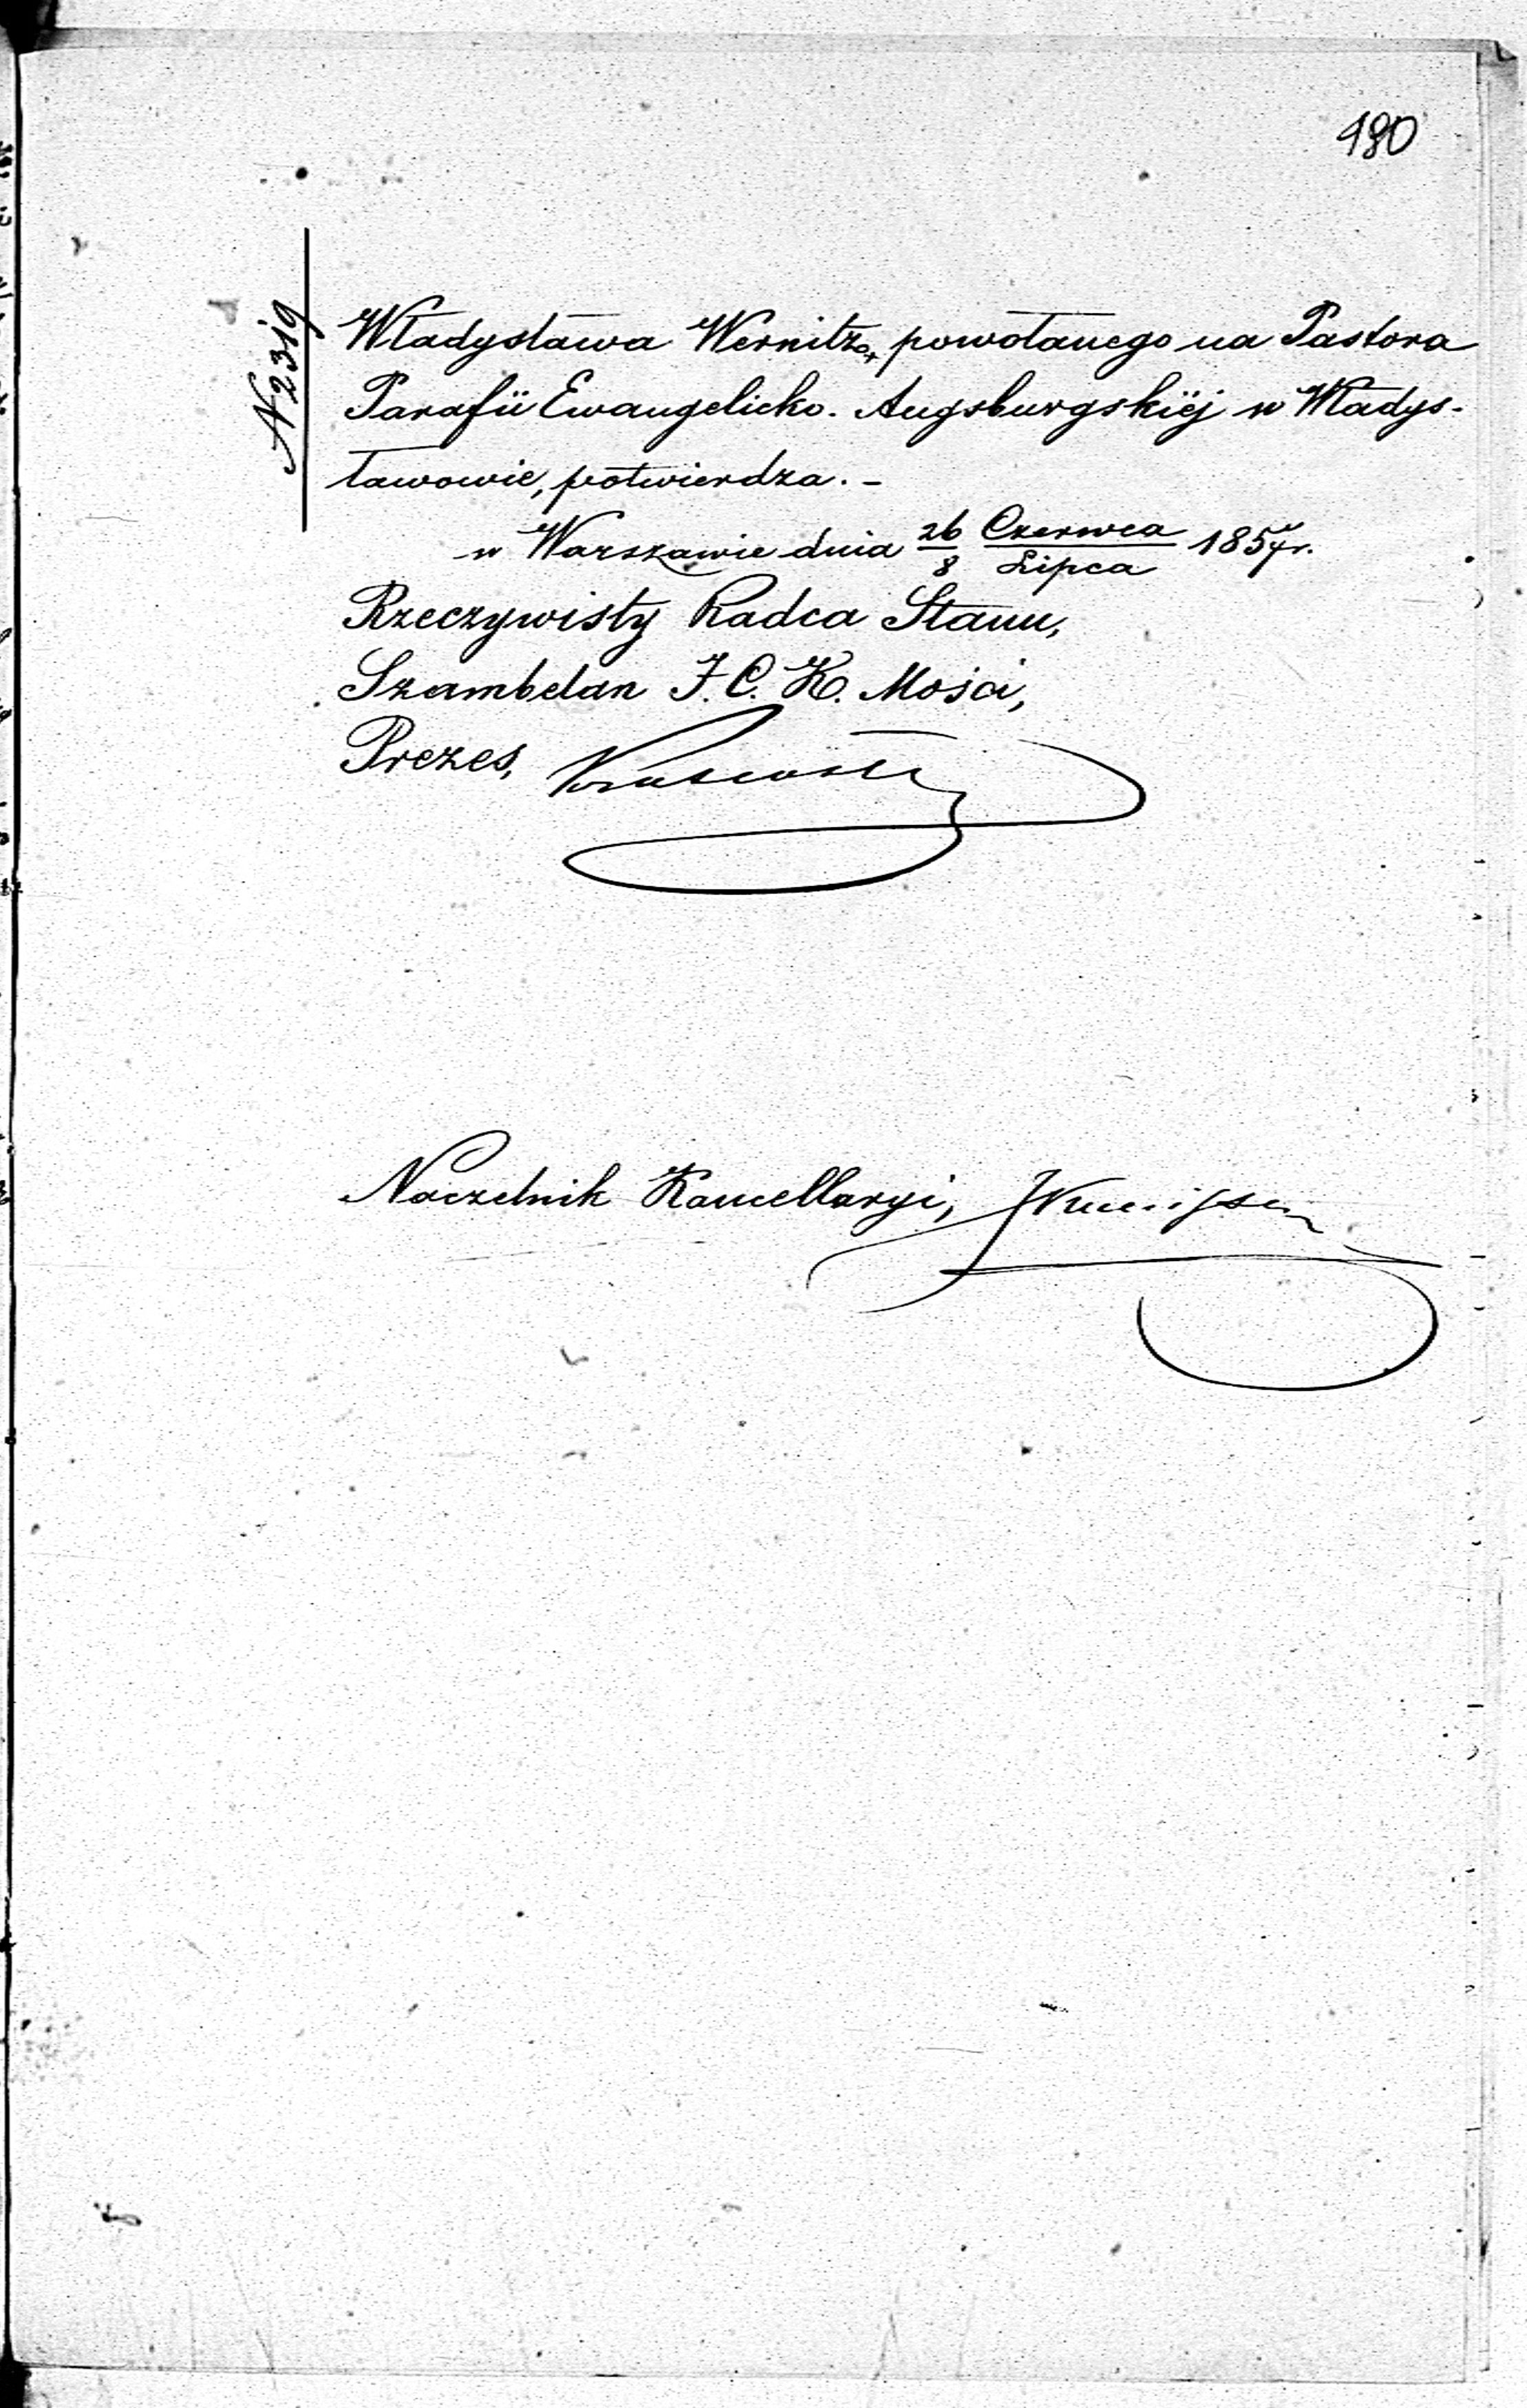 180
N 2319
Władysława Wernitza, powołanego na Pastora
Parafii Ewangelicko-Augsburgskiéj w Władys-
ławowie, potwierdza. -
w Warszawie dnia 26/8 Czerwca/Lipca 1857 r.
Rzeczywisty Radca Stanu,
Szambelan J. C. K. Mości,
Prezes,
Naczelnik Kancellaryi,